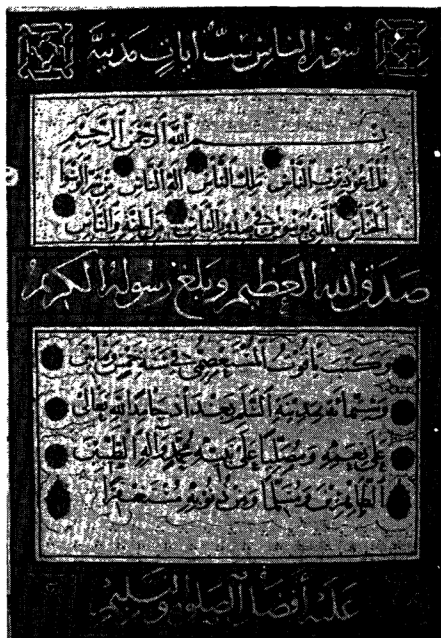 سورة الناس ست آيات مدنية
بسم الله الرحمن الرحيم
قل أعوذ برب الناس ملك الناس إله الناس من شر الوسواس
الخناس الذي يوسوس في صدور الناس من الجنة والناس
صدق الله العظيم وبلغ رسوله الكريم
وكتب ياقوت المستعصمي في سنة خمس
وستمائة بمدينة السلام بغداد حامدا لله تعالى
على نعمه ومصليا على نبيه محمد وآله الطيبين
الطاهرين ومسلما ومن ذنوبه مستغفرا
عليه أفضل الصلوة والتسليم